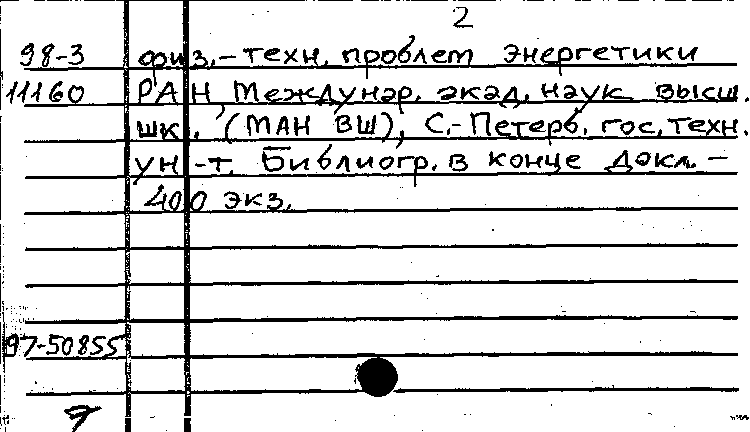 2
98-3 физ.-техн. проблем энергетики
11160 РАН, Междунар. акад. наук высш.
шк. (МАН ВШ), С.-Петерб. гос. техн.
ун-т. Библиогр. в конце докл. –
400 экз.
97-50855